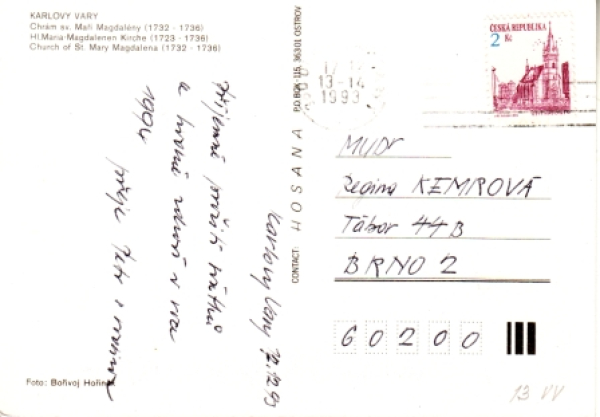 KARLOVY VARY
Chrám sv. Maří Magdalény (1732 - 1736)
Hl. Maria-Magdalenen Kirche (1723 - 1736)
Church of St. Mary Magdalena (1732 - 1736)
Karlovy Vary 7.12.93
příjemné prožití svátků
a hodně zdraví v roce
1994
přeje Petr s rodinou
Foto: Bořivoj Hořínek
CONTACT: HOSANA P.O. BOX-115, 36301 OSTROV
13-14
1993
ČESKÁ REPUBLIKA
2 Kč
MUDr
Regina KEMROVÁ
Tábor 44B
BRNO 2
60200
13 VV